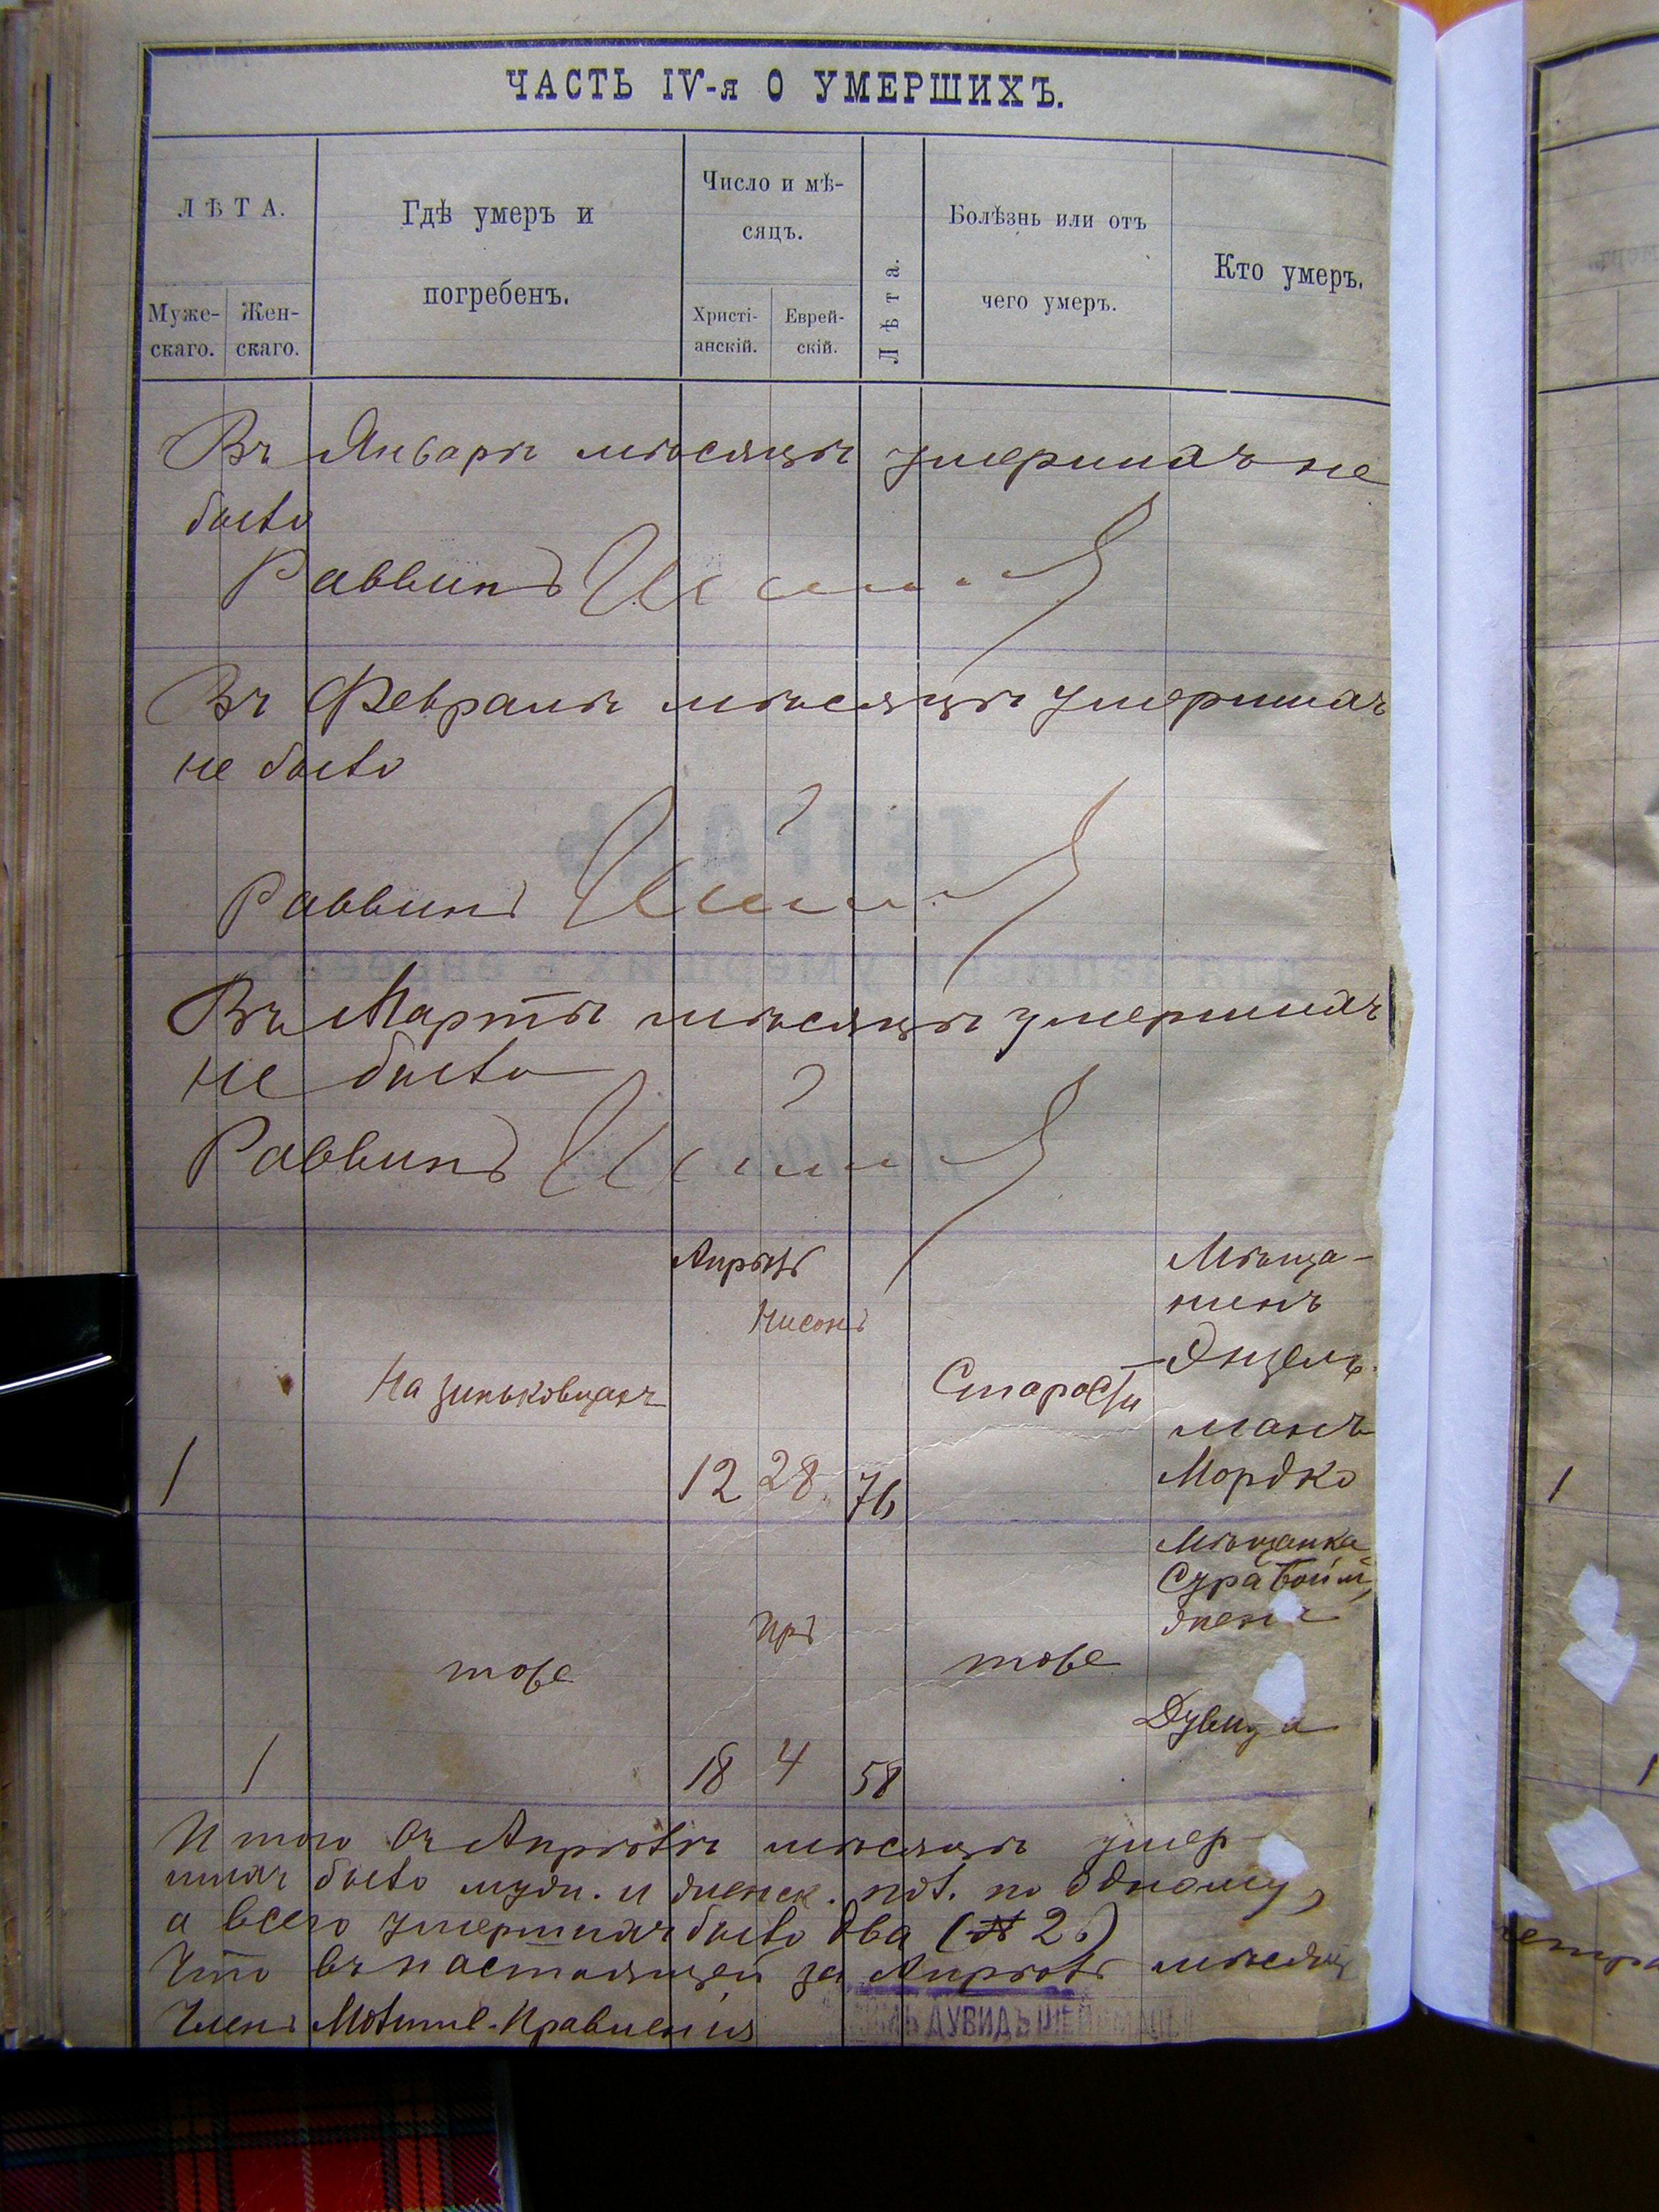 ЧАСТЬ IV-я О УМЕРШИХЪ.
ЛѢТА.
Муже-
скаго.
Жен-
скаго.
Гдѣ умеръ и
погребенъ.
Число и мѣ-
сяцъ.
Христі-
анскій.
Еврей-
скій.
Лѣта.
Болѣзнь или отъ
чего умеръ.
Кто умеръ.
Въ Январѣ мѣсяцѣ умершихъ не
было
Раввинъ
Въ Февралѣ мѣсяцѣ умершихъ
не было
Раввинъ
Въ Мартѣ мѣсяцѣ умершихъ
не было
Раввинъ
Апрѣль
Нисонъ
На зиньковцахъ
Старости
Мѣща-
нинъ
Мордко
1
12 28 76
Мѣщанка
Сура
Иръ
тоже
тоже
1
18 4 58
Итого въ Апрѣлѣ мѣсяцѣ умер-
шихъ было муж. и женск. пол. по одному,
а всего умершихъ было два (№ 2)
Что въ настоящей за Апрѣль мѣсяцъ
Членъ Молитв. Правленія
ДУВИДЪ
1
1